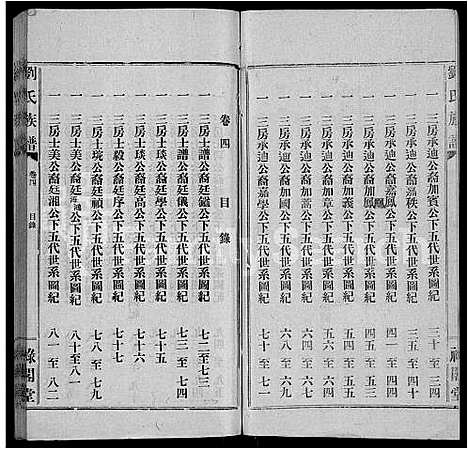 劉氏族譜
一 三房承迪公裔加賓公下五代世系圖紀 三十至三四
一 三房承迪公裔嘉秩公下五代世系圖紀 三五至四十
一 三房承迪公裔加 公下五代世系圖紀 四一至四四
一 三房承迪公裔加鳳公下五代世系圖紀 四五至五一
一 三房承迪公裔加義公下五代世系圖紀 五二至五三
一 三房承迪公裔加章公下五代世系圖紀 五四至五五
一 三房承迪公裔加國公下五代世系圖紀 六八至六九
一 三房承迪公裔嘉學公下五代世系圖紀 七十至七一
卷四 目錄
一 三房士譜公裔廷鑑公下五代世系圖紀 七二至七三
一 三房士譜公裔廷儀公下五代世系圖紀 七三至七四
一 三房士琰公裔廷學公下五代世系圖紀 七十五
一 三房士琰公裔廷高公下五代世系圖紀 七十六
一 三房士毅公裔廷序公下五代世系圖紀 七十七
一 三房士琬公裔廷禎公下五代世系圖紀 七八至七九
一 三房士美公裔廷 公下五代世系圖紀 八十
一 三房士美公裔廷湘公下五代世系圖紀 八一至八二
劉氏族譜 卷四 目錄 祿閣堂